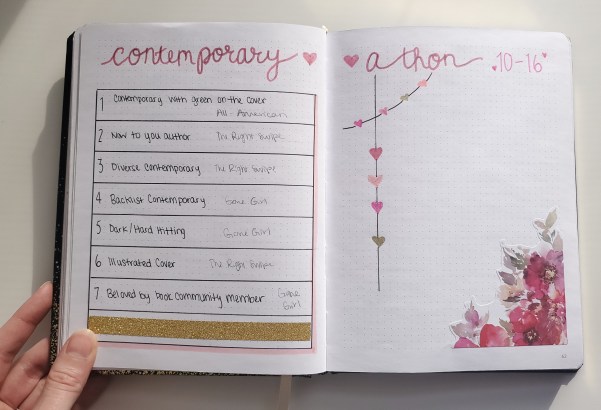 contemporary
1 Contemporary with green on the cover
All-American
2 New to you author The Right Swipe
3 Diverse Contemporary The Right Swipe
4 Backlist Contemporary Gone Girl
5 Dark/Hard Hitting Gone Girl
6 Illustrated Cover The Right Swipe
7 Beloved by book community member Gone
Girl
a thon 10-16